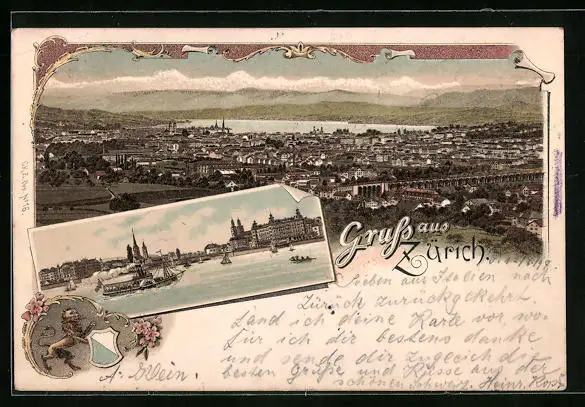 Gruß aus
Zürich.
Soeben aus Italien nach
Zürich zurückgekehrt.
fand ich deine Karte vor wo-
für ich dir bestens danke
und sende dir zugleich die
besten Grüße und Küsse aus der
schönen Schweiz. Heinr.